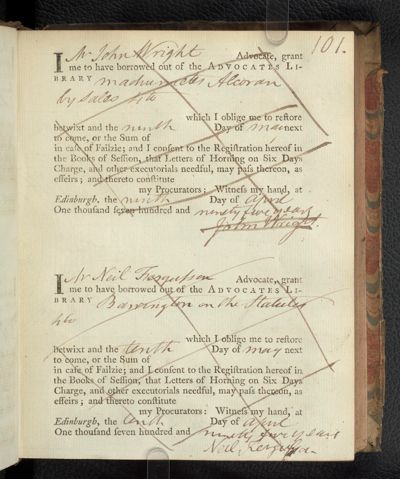 101.
I Mr John Wright Advocate, grant
me to have borrowed out of the ADVOCATES LI-
BRARY mahumetes Alcoran
by Sales 4to
which I oblige me to reſtore
betwixt and the ninth Day of May next
to come, or the Sum of
in caſe of Failzie; and I conſent to the Regiſtration hereof in
the Books of Seſſion, that Letters of Horning on Six Days
Charge, and other executorials needful, may paſs thereon, as
effeirs; and thereto conſtitute
my Procurators: Witneſs my hand, at
Edinburgh, the ninth Day of April
One thouſand ſeven hundred and ninety five years
John Wright.
I Mr Neil Fergusson Advocate, grant
me to have borrowed out of the ADVOCATES LI-
BRARY Barrington on the Statutes
4to
which I oblige me to reſtore
betwixt and the tenth Day of May next
to come, or the Sum of
in caſe of Failzie; and I conſent to the Regiſtration hereof in
the Books of Seſſion, that Letters of Horning on Six Days
Charge, and other executorials needful, may paſs thereon, as
effeirs; and thereto conſtitute
my Procurators: Witneſs my hand, at
Edinburgh, the tenth Day of April
One thouſand ſeven hundred and ninety five years
Neil Fergusson